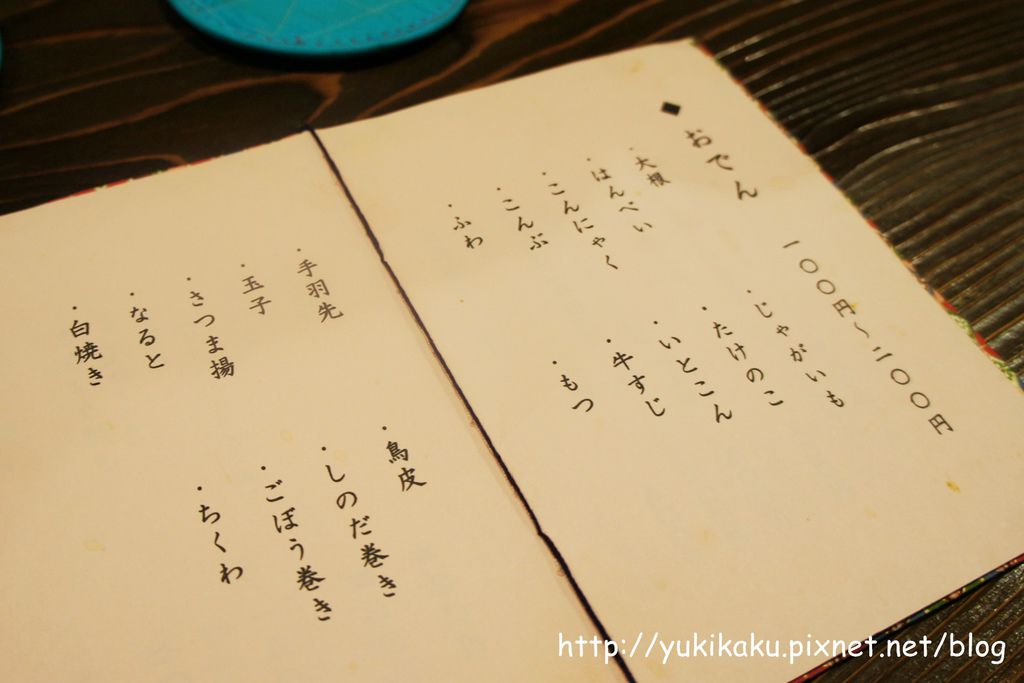 ◆おでん 一〇〇円～二〇〇円
・大根
・はんぺい
・こんにゃく
・こんぶ
・ふわ
・じゃがいも
・たけのこ
・いとこん
・牛すじ
・もつ
・手羽先
・玉子
・さつま揚
・なると
・白焼き
・鳥皮
・しのだ巻き
・ごぼう巻き
・ちくわ
http://yukikaku.pixnet.net/blog